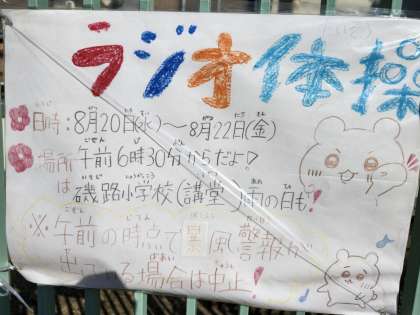 ラジオ体操
日時:8月20日(水)~8月22日(金)
午前6時30分からだよ♡
場所は 磯路小学校(講堂)雨の日も!
※午前の時点で暴風警報が
出ている場合は中止!